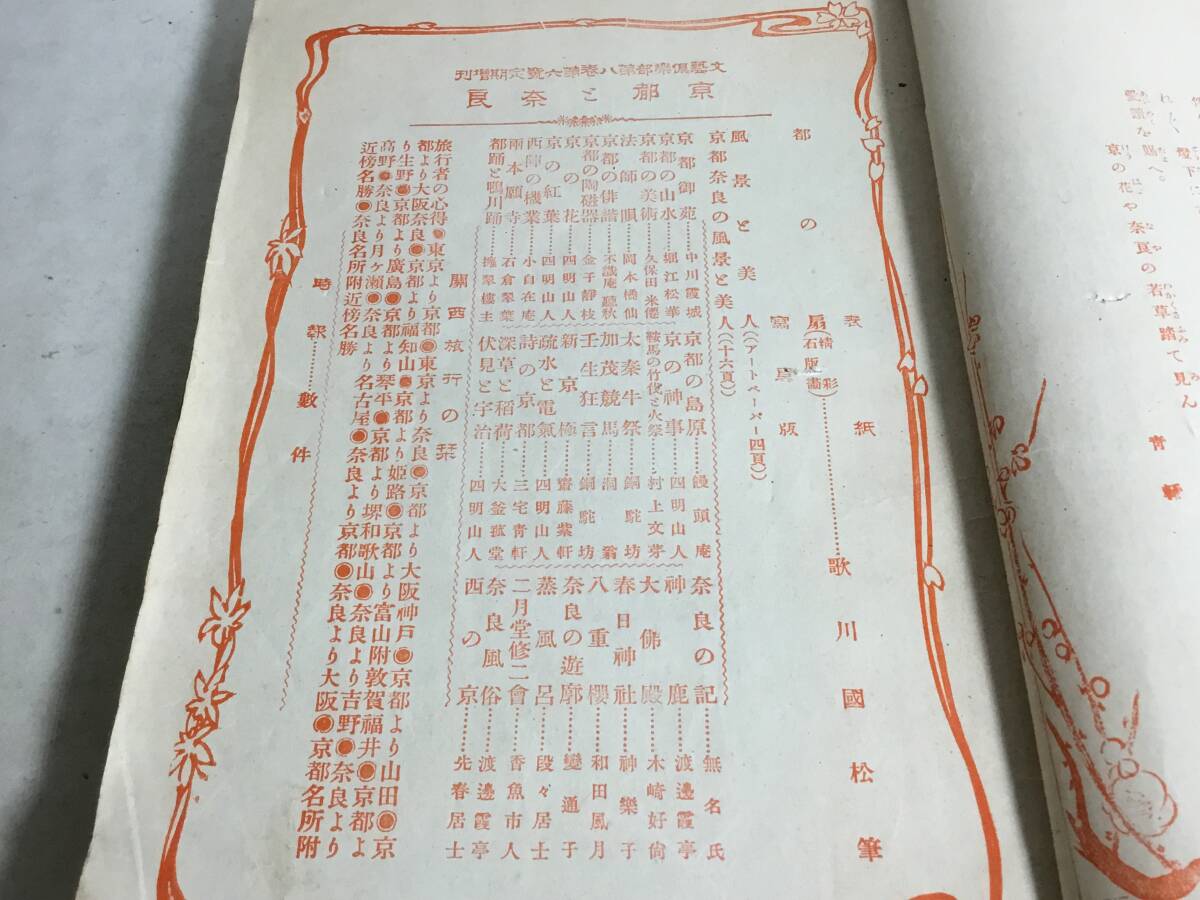 燈下に
れく給へ。
愛讀を賜へ。
京の花や奈良の若草踏て見ん
青軒
文藝倶樂部第八卷第六號定期增刊
京都と奈良
表紙
都の扇(石版精彩畫)……歌川國松筆
寫眞版
風景と美人(アートペーパー四頁)
京都奈良の風景と美人(十六頁)
京都御苑……中川霞城
京都の山水……堀江松華
京都の美術……久保田米僊
法師唄……岡本橘仙
京都の俳諧……不識庵聽秋
京都の陶磁器……金子靜枝
京の花……四明山人
京の紅葉……四明山人
西陣の機業……小自在庵
兩本願寺……石倉翠葉
都踊と鴨川踊……擁翠樓主
京都の島原……饅頭庵
京の神事……四明山人
鞍馬の竹伐と火祭……村上文芽
太秦牛祭……銅駝坊
加茂競馬……洞翁
壬生狂言……銅駝坊
新京極……齋藤紫軒
疏水と電氣……四明山人
詩の京都……三宅青軒
深草と稻荷……大釜菰堂
伏見と宇治……四明山人
奈良の記……無名氏
神鹿……渡邊霞亭
大佛殿……木崎好尙
春日神社……神樂子
八重櫻……和田風月
奈良の遊廓……變通子
蒸風呂……段々居士
二月堂修二會……香魚市人
奈良風俗……渡邊霞亭
西の京……先春居士
關西旅行の栞
旅行者の心得◉東京より京都◉東京より奈良◉京都より大阪神戶◉京都より山田◉京
都より大阪奈良◉京都より福知山◉京都より姬路◉京都より富山附敦賀福井◉京都よ
り生野◉京都より廣島◉京都より琴平◉京都より堺和歌山◉奈良より吉野◉奈良より
高野◉奈良より月ヶ瀨◉奈良より名古屋◉奈良より京都◉奈良より大阪◉京都名所附
近傍名勝◉奈良名所附近傍名勝
時報……數件